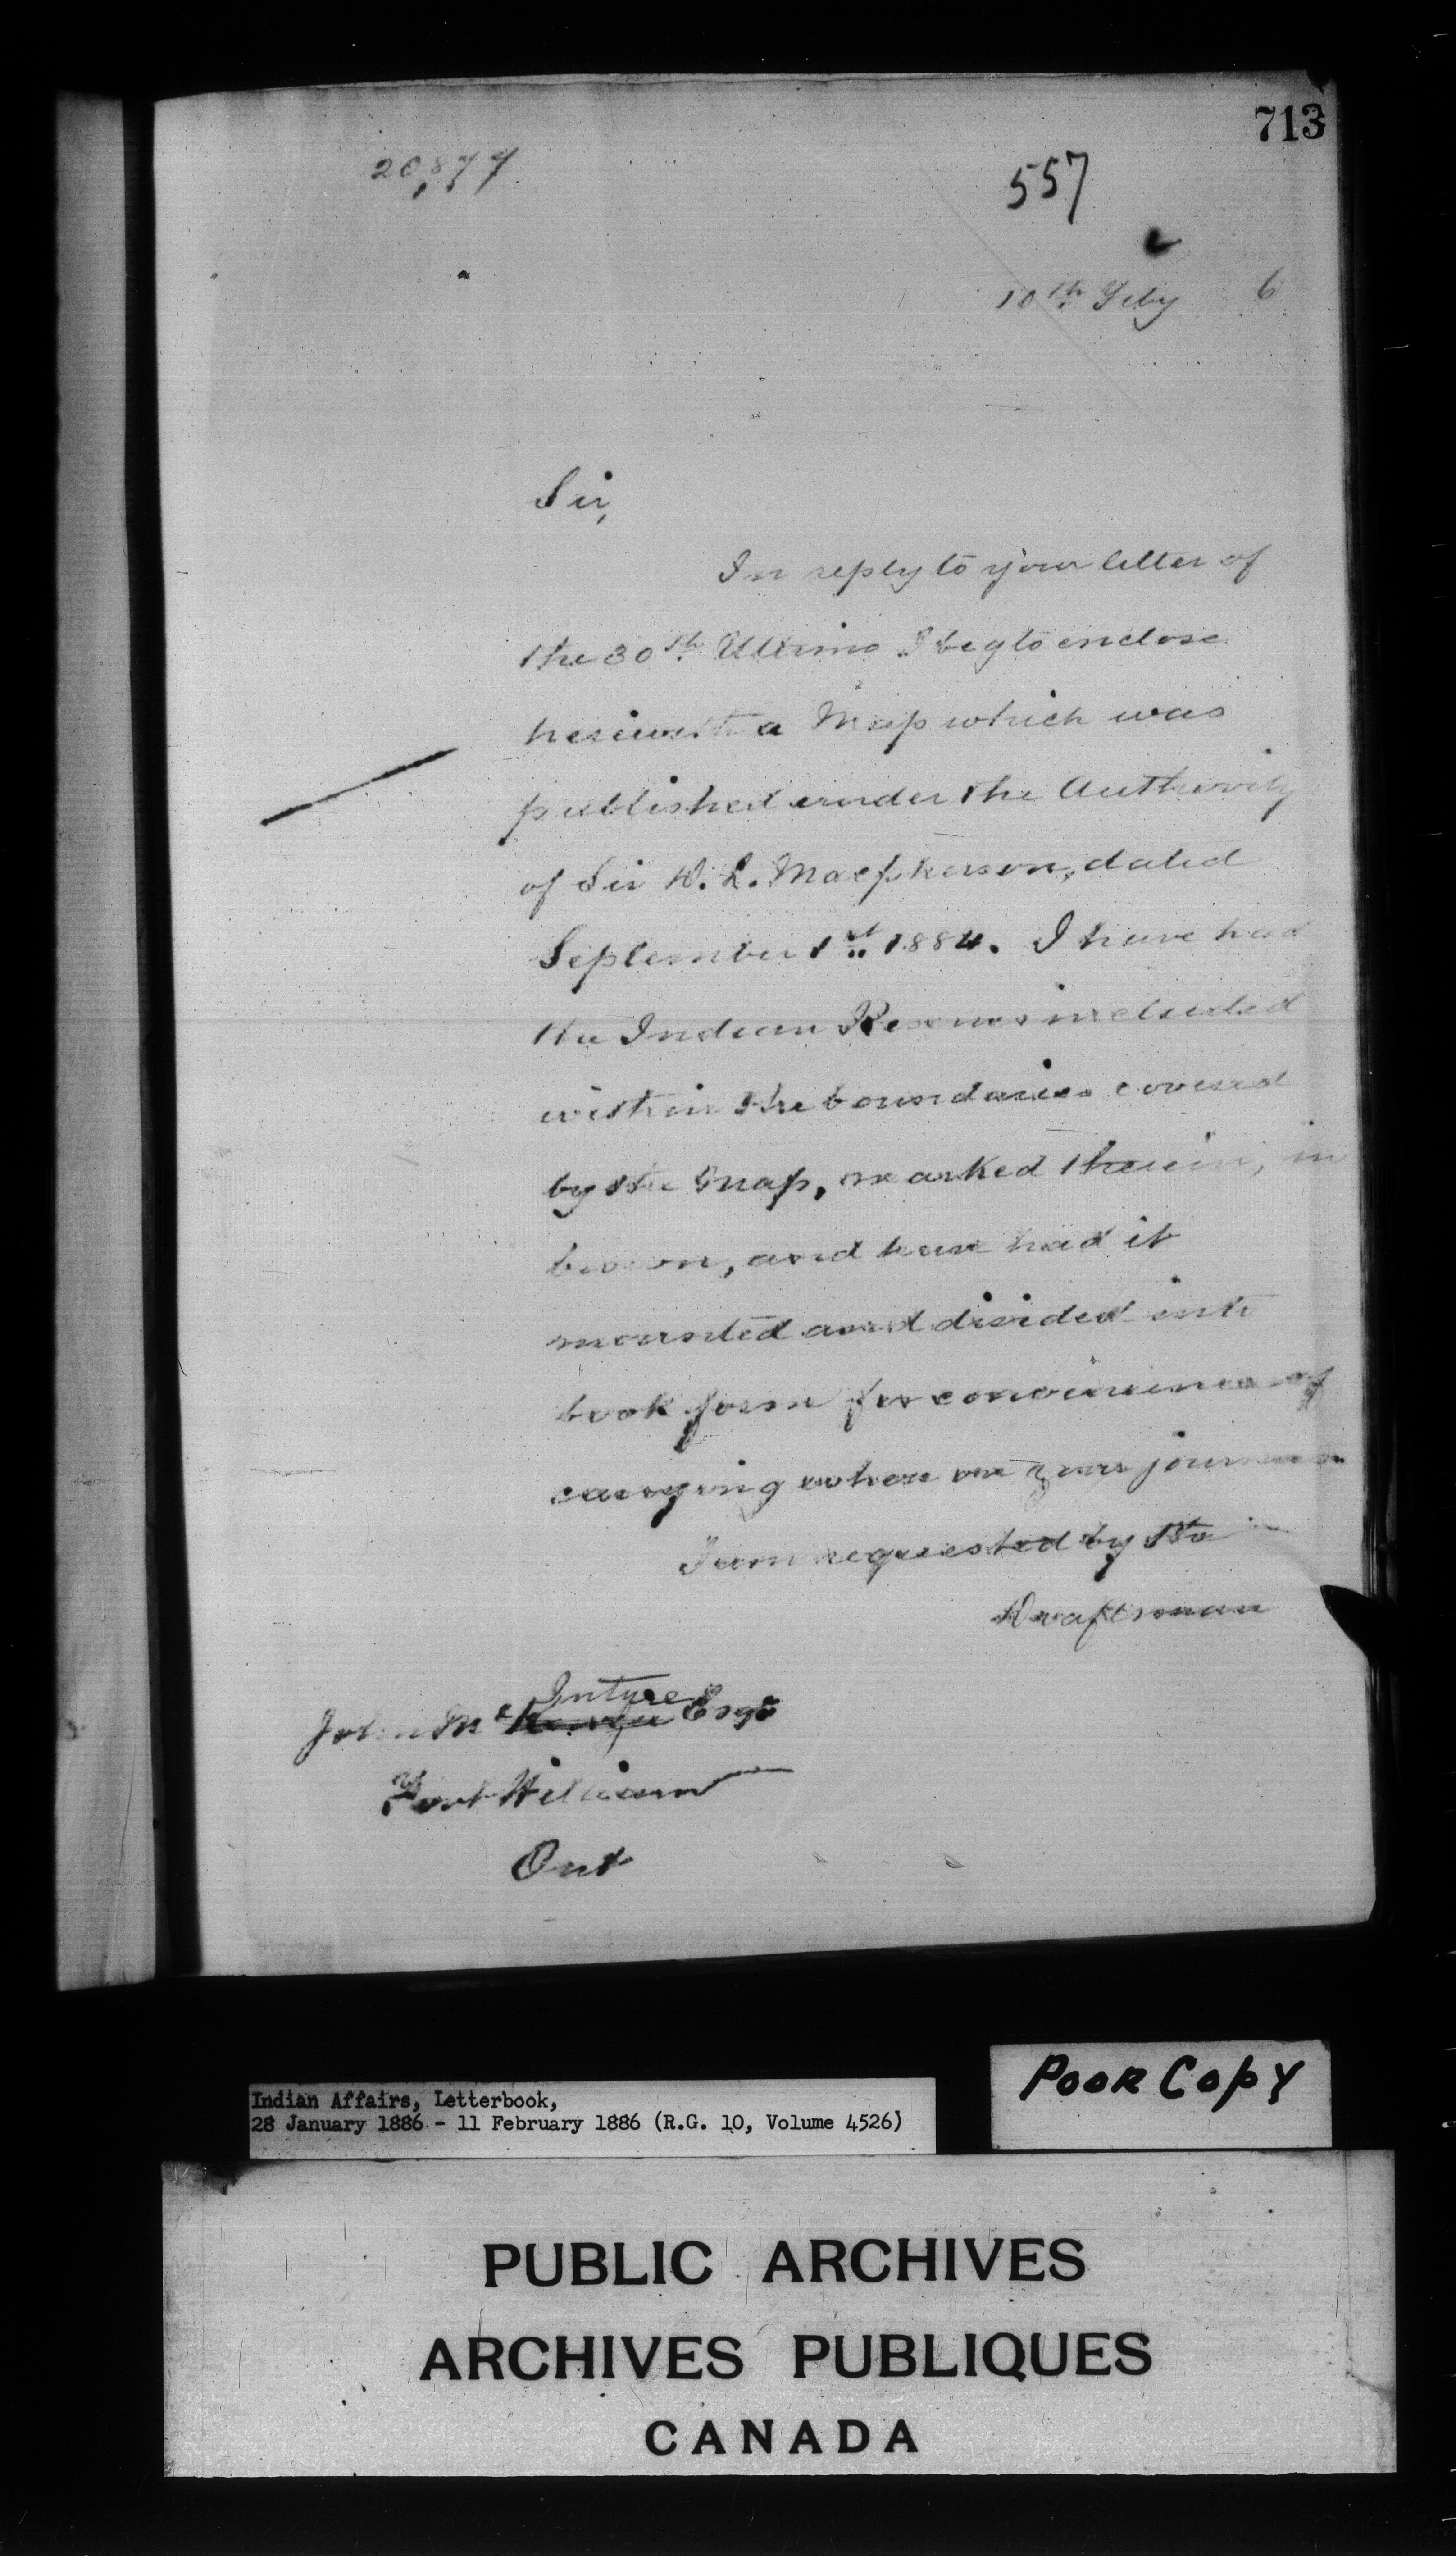 713
20,877
557
10th Feby 6
Sir,
In reply to your letter of
the 30th Ultimo I beg to enclose
herewith a Map which was
published under the Authority
of Sir D. L. Macpherson, dated
September 1st 1884. I have had
the Indian Reserves included
within the boundaries covered
by the Map, marked therein, in
brown, and have had it
mounted and divided into
book form for convenience of
carrying when on your journeys
I am requested by the
Draftsman
Intyre
John Mc Kenzie Esqr
Fort William
Ont
Indian Affairs, Letterbook,
28 January 1886 - 11 February 1886 (R.G. 10, Volume 4526)
POOR COPY
PUBLIC ARCHIVES
ARCHIVES PUBLIQUES
CANADA